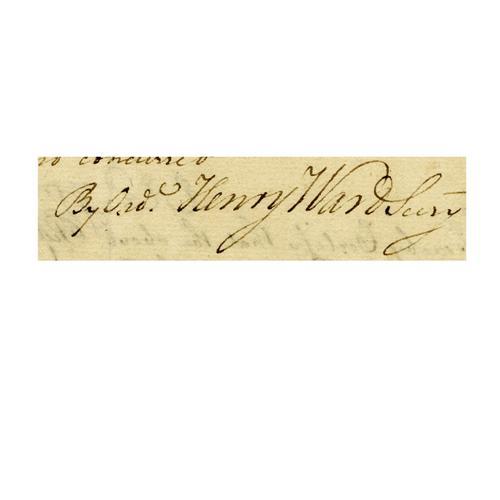 concurred
By Ord.r Henry Ward Secry